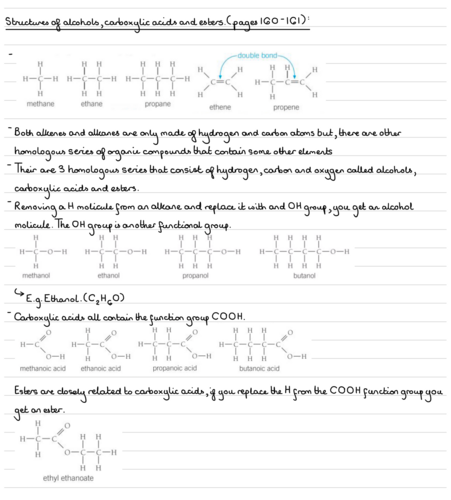 Structures of alcohols, carboxylic acids and esters. (pages 160-161):
double bond
methane ethane propane ethene propene
- Both alkenes and alkanes are only made of hydrogen and carbon atoms but, there are other
homologous series of organic compounds that contain some other elements
- Their are 3 homologous series that consist of hydrogen, carbon and oxygen called alcohols,
carboxylic acids and esters.
- Removing a H molicule from an alkane and replace it with and OH group, you get an alcohol
molicule. The OH group is another functional group.
methanol ethanol propanol butanol
↳ E.g Ethanol. (C₂H₆O)
- Carboxylic acids all contain the function group COOH.
methanoic acid ethanoic acid propanoic acid butanoic acid
Esters are closely related to carboxylic acids, if you replace the H from the COOH function group you
get an ester.
ethyl ethanoate